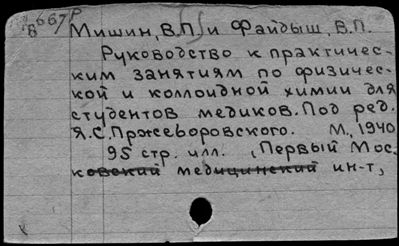 В 667
Р
Мишин, В.П. и Файдыш, В.П.
Руководство к практичес-
ким занятиям по физичес-
кой и коллоидной химии для
студентов медиков. Под ред.
Я.С. Пржеборовского. М., 1940
95 стр. илл. (Первый Мос-
ковский медицинский ин-т,